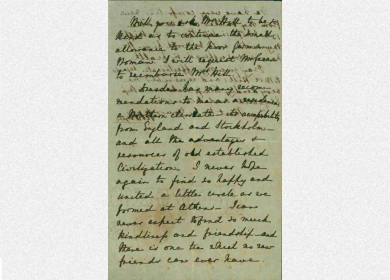 With you ask Mrs Hill to be so
kind as to continue the small
allowance to the poor
Woman. I will request
to reimburse Mrs Hill.
Dresden has many recom
mendations to me as a residence
a Northern climate its accessibility
from England and Stockholm
and all the advantages &
resources of old established
Civilization. I never hope
again to find so happy and
united a little circle as we
formed at Athens. I can
never expect to find so much
kindliness and friendship and
there is one tie which no new
friends can ever have.